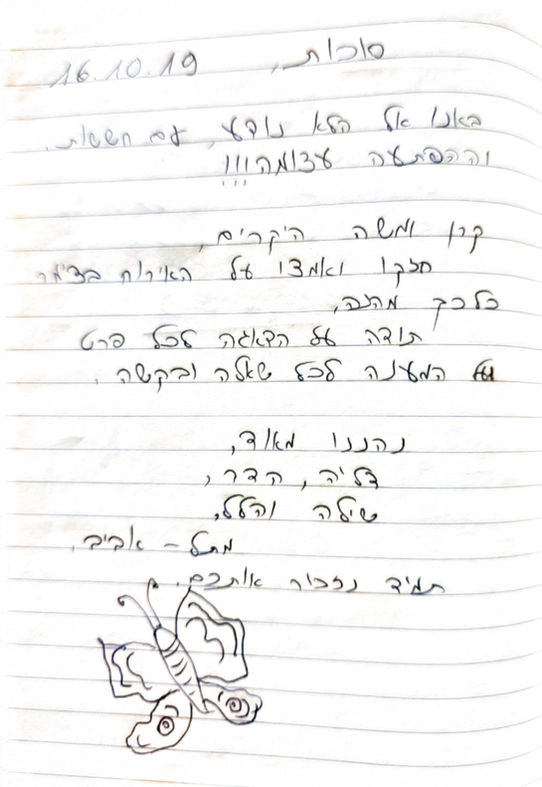 סוכות, 16.10.19
באנו אל הלא נודע, עם חששות.
וההפתעה עצומה!!!
קרן ומשה היקרים,
חזקו ואמצו על האירוח בצימר
כל כך מהנה,
תודה על הדאגה לכל פרט
המענה לכל שאלה ובקשה.
נהננו מאוד,
דליה, הדר,
שילה והלל,
מתל - אביב.
תמיד נזכור אותכם.